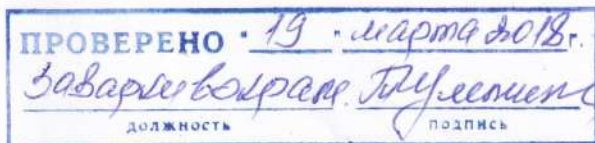 ПРОВЕРЕНО "19" марта 2018г.
Зав
должность подпись